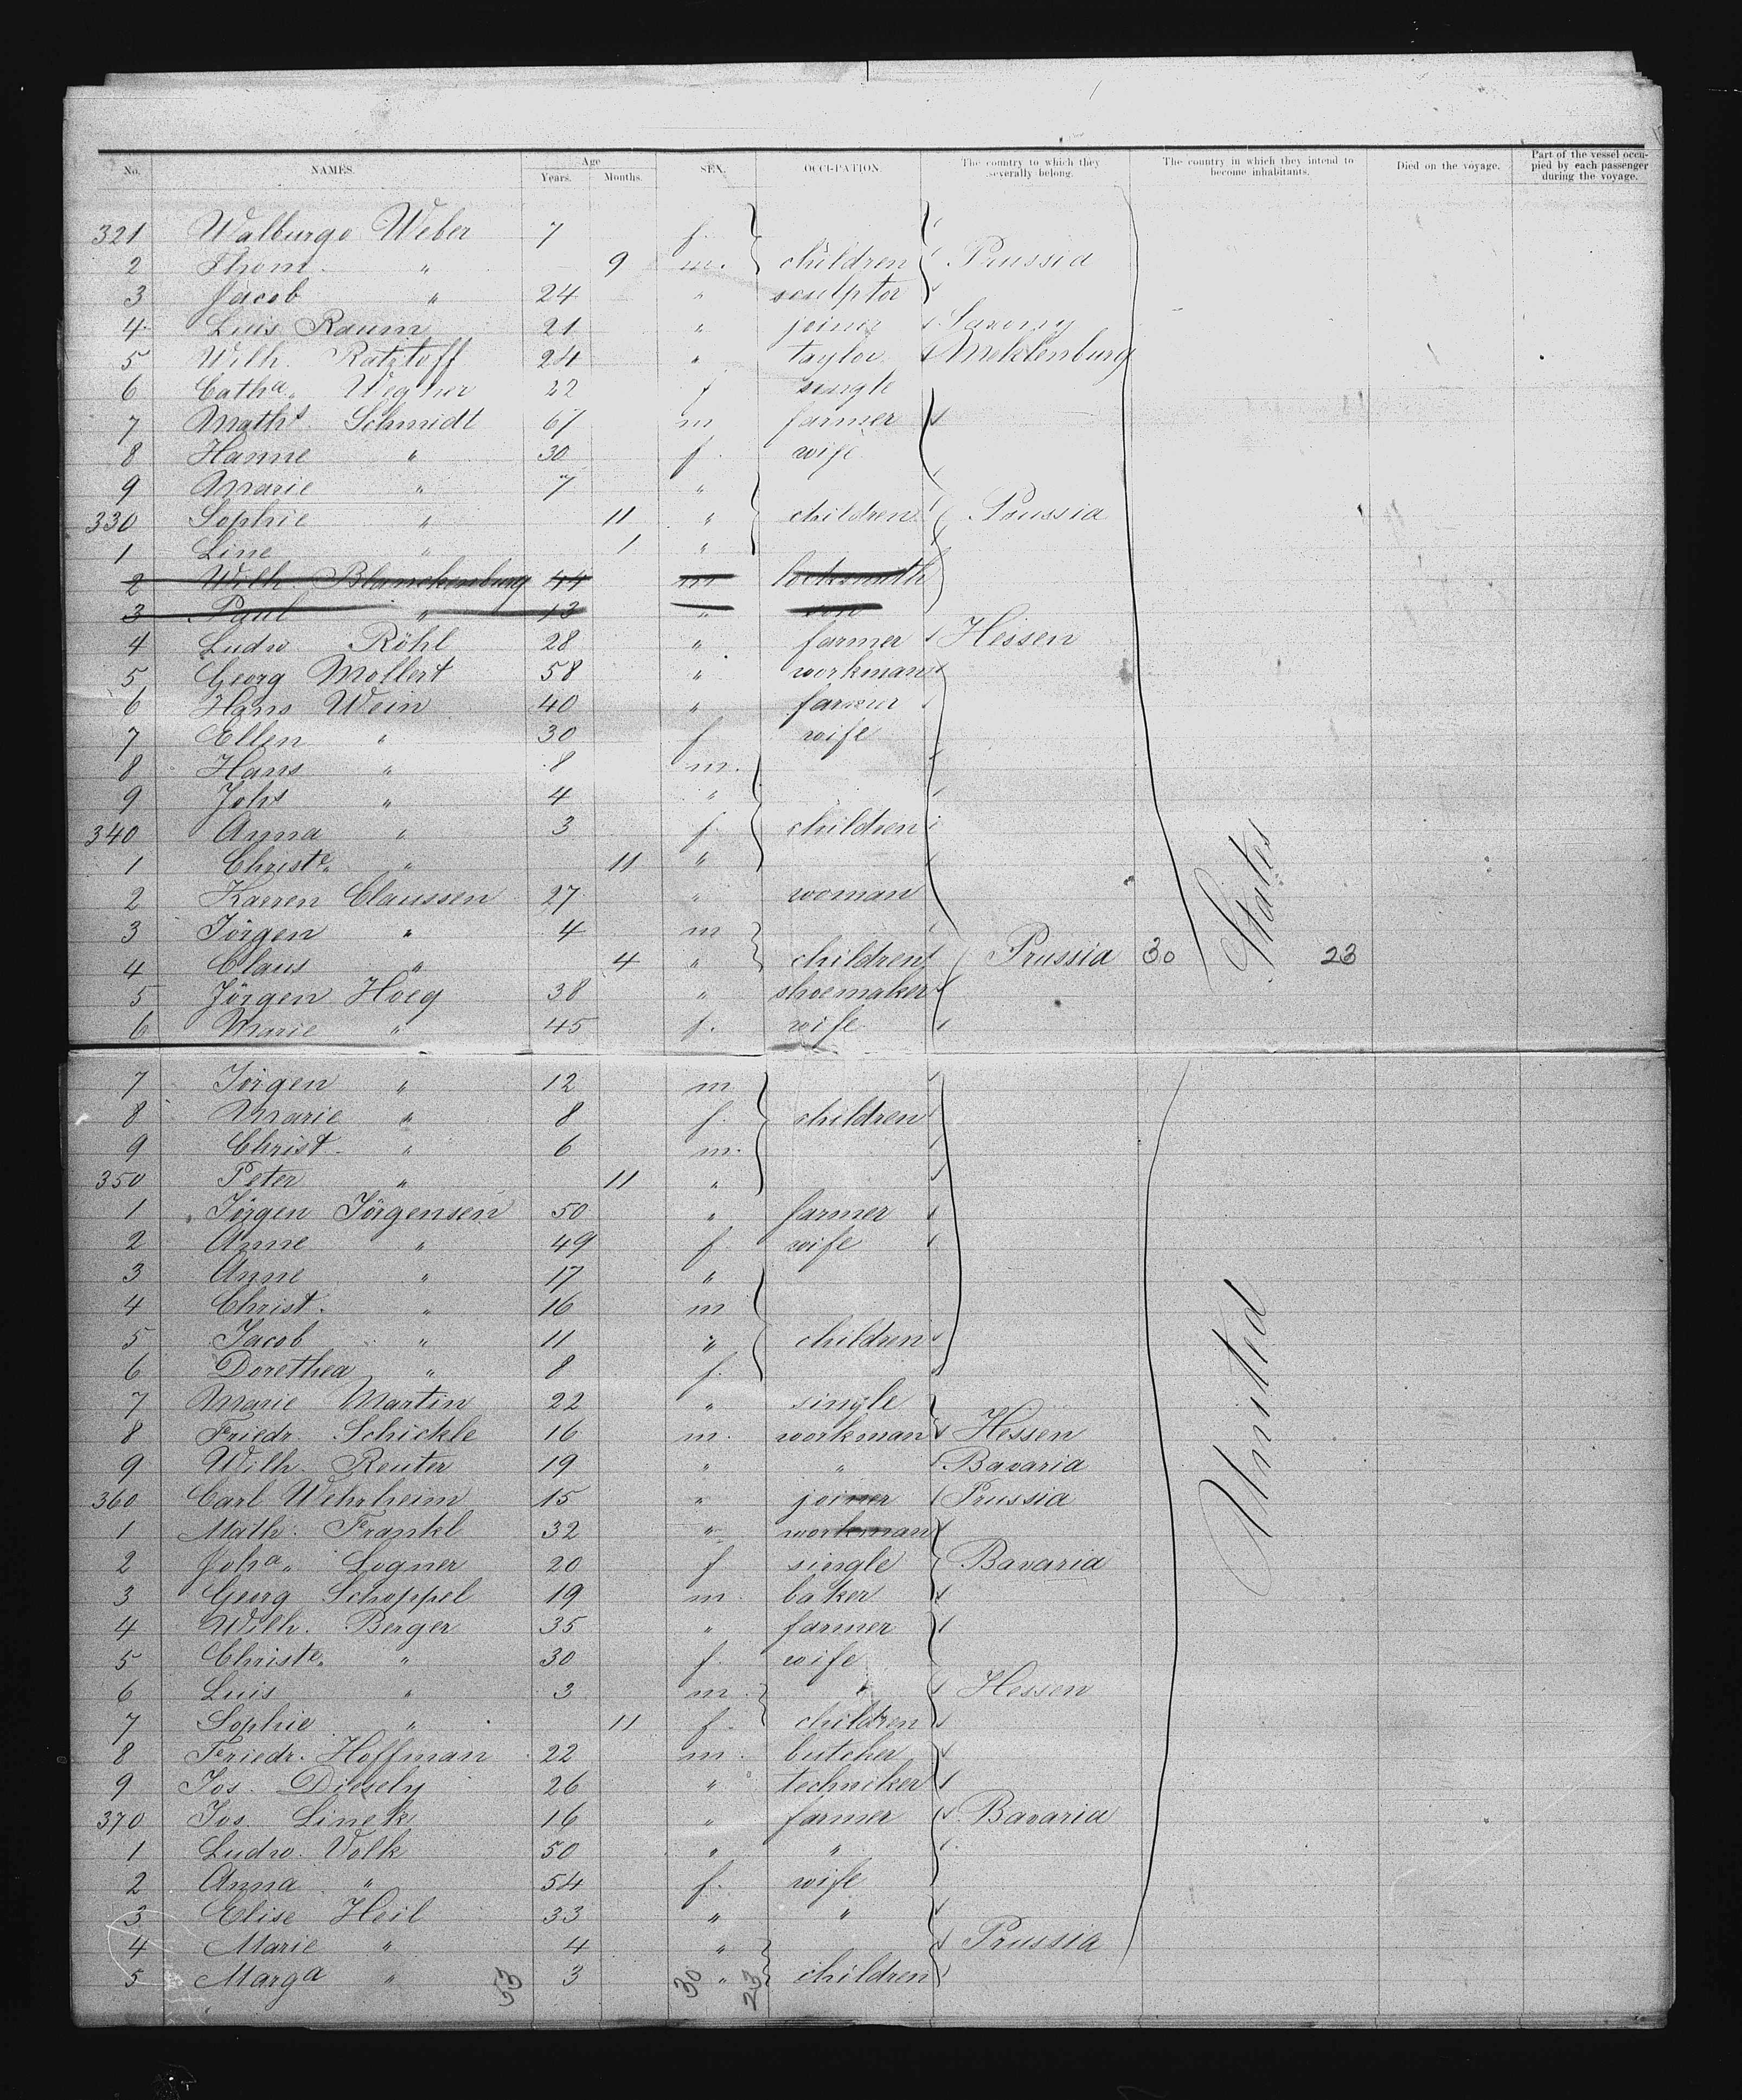 No. NAMES. Age Years. Months. SEX. OCCUPATION. The country to which they severally belong. The country in which they intend to become inhabitants. Died on the voyage. Part of the vessel occupied by each passenger during the voyage.
321 Walburga Weber 7 f.
2 Thom. " 9 m. children Prussia
3 Jacob " 24 " sculptor
4 Luis Raum 21 " joiner Saxony
5 Wilh. Ratzloff 24 " taylor Meklenburg
6 Catha. Wegner 22 f single
7 Maths. Schmidt 61 m farmer
8 Hanne " 30 f. wife
9 Marie " 7 "
330 Sophie " 11 " children Prussia
1 Line " 1 "
2 Wilh Blanckenburg 44 m locksmith
3 Paul " 13 " son
4 Ludw. Röhl 28 " farmer Hessen
5 Georg Mollert 58 " workman
6 Hans Wein 40 " farmer
7 Ellen " 30 f wife
8 Hans " 8 m.
9 Johs " 4 "
340 Anna " 3 f. children
1 Christe. " 11 "
2 Karren Claussen 27 " woman
3 Jörgen " 4 m
4 Claus " 4 " children Prussia 30 States 23
5 Jörgen Hoeg 38 " shoemaker
6 Marie " 45 f. wife
7 Jörgen " 12 m
8 Marie " 8 f. children
9 Christ. " 6 m.
350 Peter " 11 "
1 Jörgen Jörgensen 50 " farmer
2 Anne " 49 f wife
3 Anne " 17 "
4 Christ. " 16 m
5 Jacob " 11 " children
6 Dorethea " 8 f.
7 Marie Martin 22 " single
8 Friedr. Schickle 16 m. workman Hessen
9 Wilh. Reuter 19 " " Bavaria
United
360 Carl Wehrheim 15 " joiner Prussia
1 Math. Frankl 32 " workman
2 Joha. Logner 20 f single Bavaria
3 Georg Schoppel 19 m. baker
4 Wilh. Berger 35 " farmer
5 Christe. " 30 f. wife
6 Luis " 3 m. Hessen
7 Sophie " 11 f. children
8 Friedr. Hoffman 22 m. butcher
9 Jos. Diesely 26 " techniker
370 Jos. Linek 16 " farmer Bavaria
1 Ludw. Volk 50 " "
2 Anna " 54 f. wife
3 Elise Heil 33 " "
4 Marie " 4 " Prussia
5 Marga " 3 " children
53 30 23